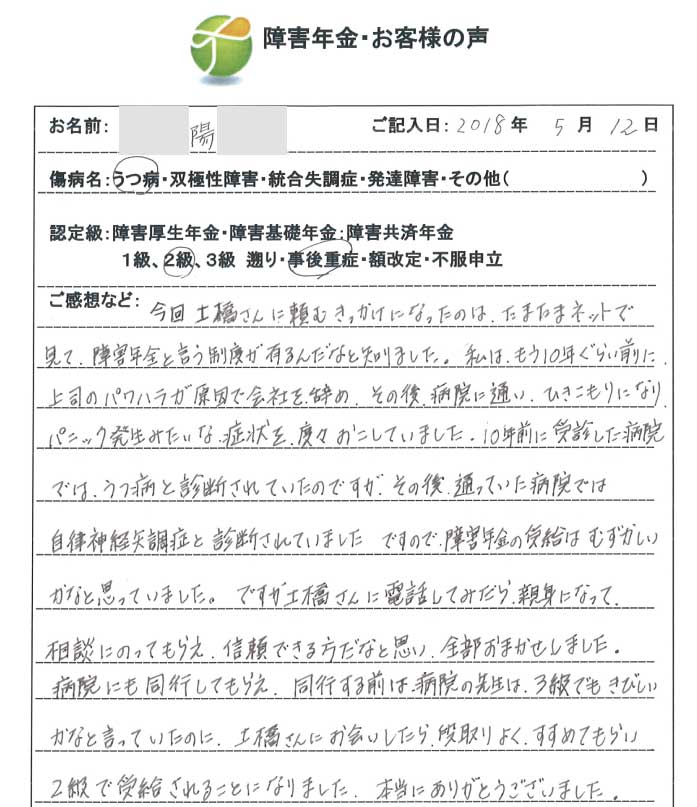 障害年金・お客様の声
お名前: 陽 ご記入日: 2018年 5月 12日
傷病名:うつ病・双極性障害・統合失調症・発達障害・その他( )
認定級:障害厚生年金・障害基礎年金:障害共済年金
1級、2級、3級 遡り・事後重症・額改定・不服申立
ご感想など: 今回 土橋さんに頼むきっかけになったのは、たまたまネットで
見て、障害年金と言う制度が有るんだなと知りました。私は、もう10年ぐらい前に、
上司のパワハラが原因で会社を、辞め、その後、病院に通い、ひきこもりになり
パニック発生みたいな、症状を、度々おこしていました。10年前に受診した病院
では、うつ病と診断されていたのですが、その後、通っていた病院では
自律神経失調症と診断されていました ですので、障害年金の受給はむずかしい
かなと思っていました。ですが土橋さんに電話してみたら、親身になって、
相談にのってもらえ、信頼できる方だなと思い、全部おまかせしました。
病院にも同行してもらえ、同行する前は、病院の先生は、3級でもきびしい
かなと言っていたのに、土橋さんにお会いしたら、段取りよく、すすめてもらい
2級で受給されることになりました、本当にありがとうございました。